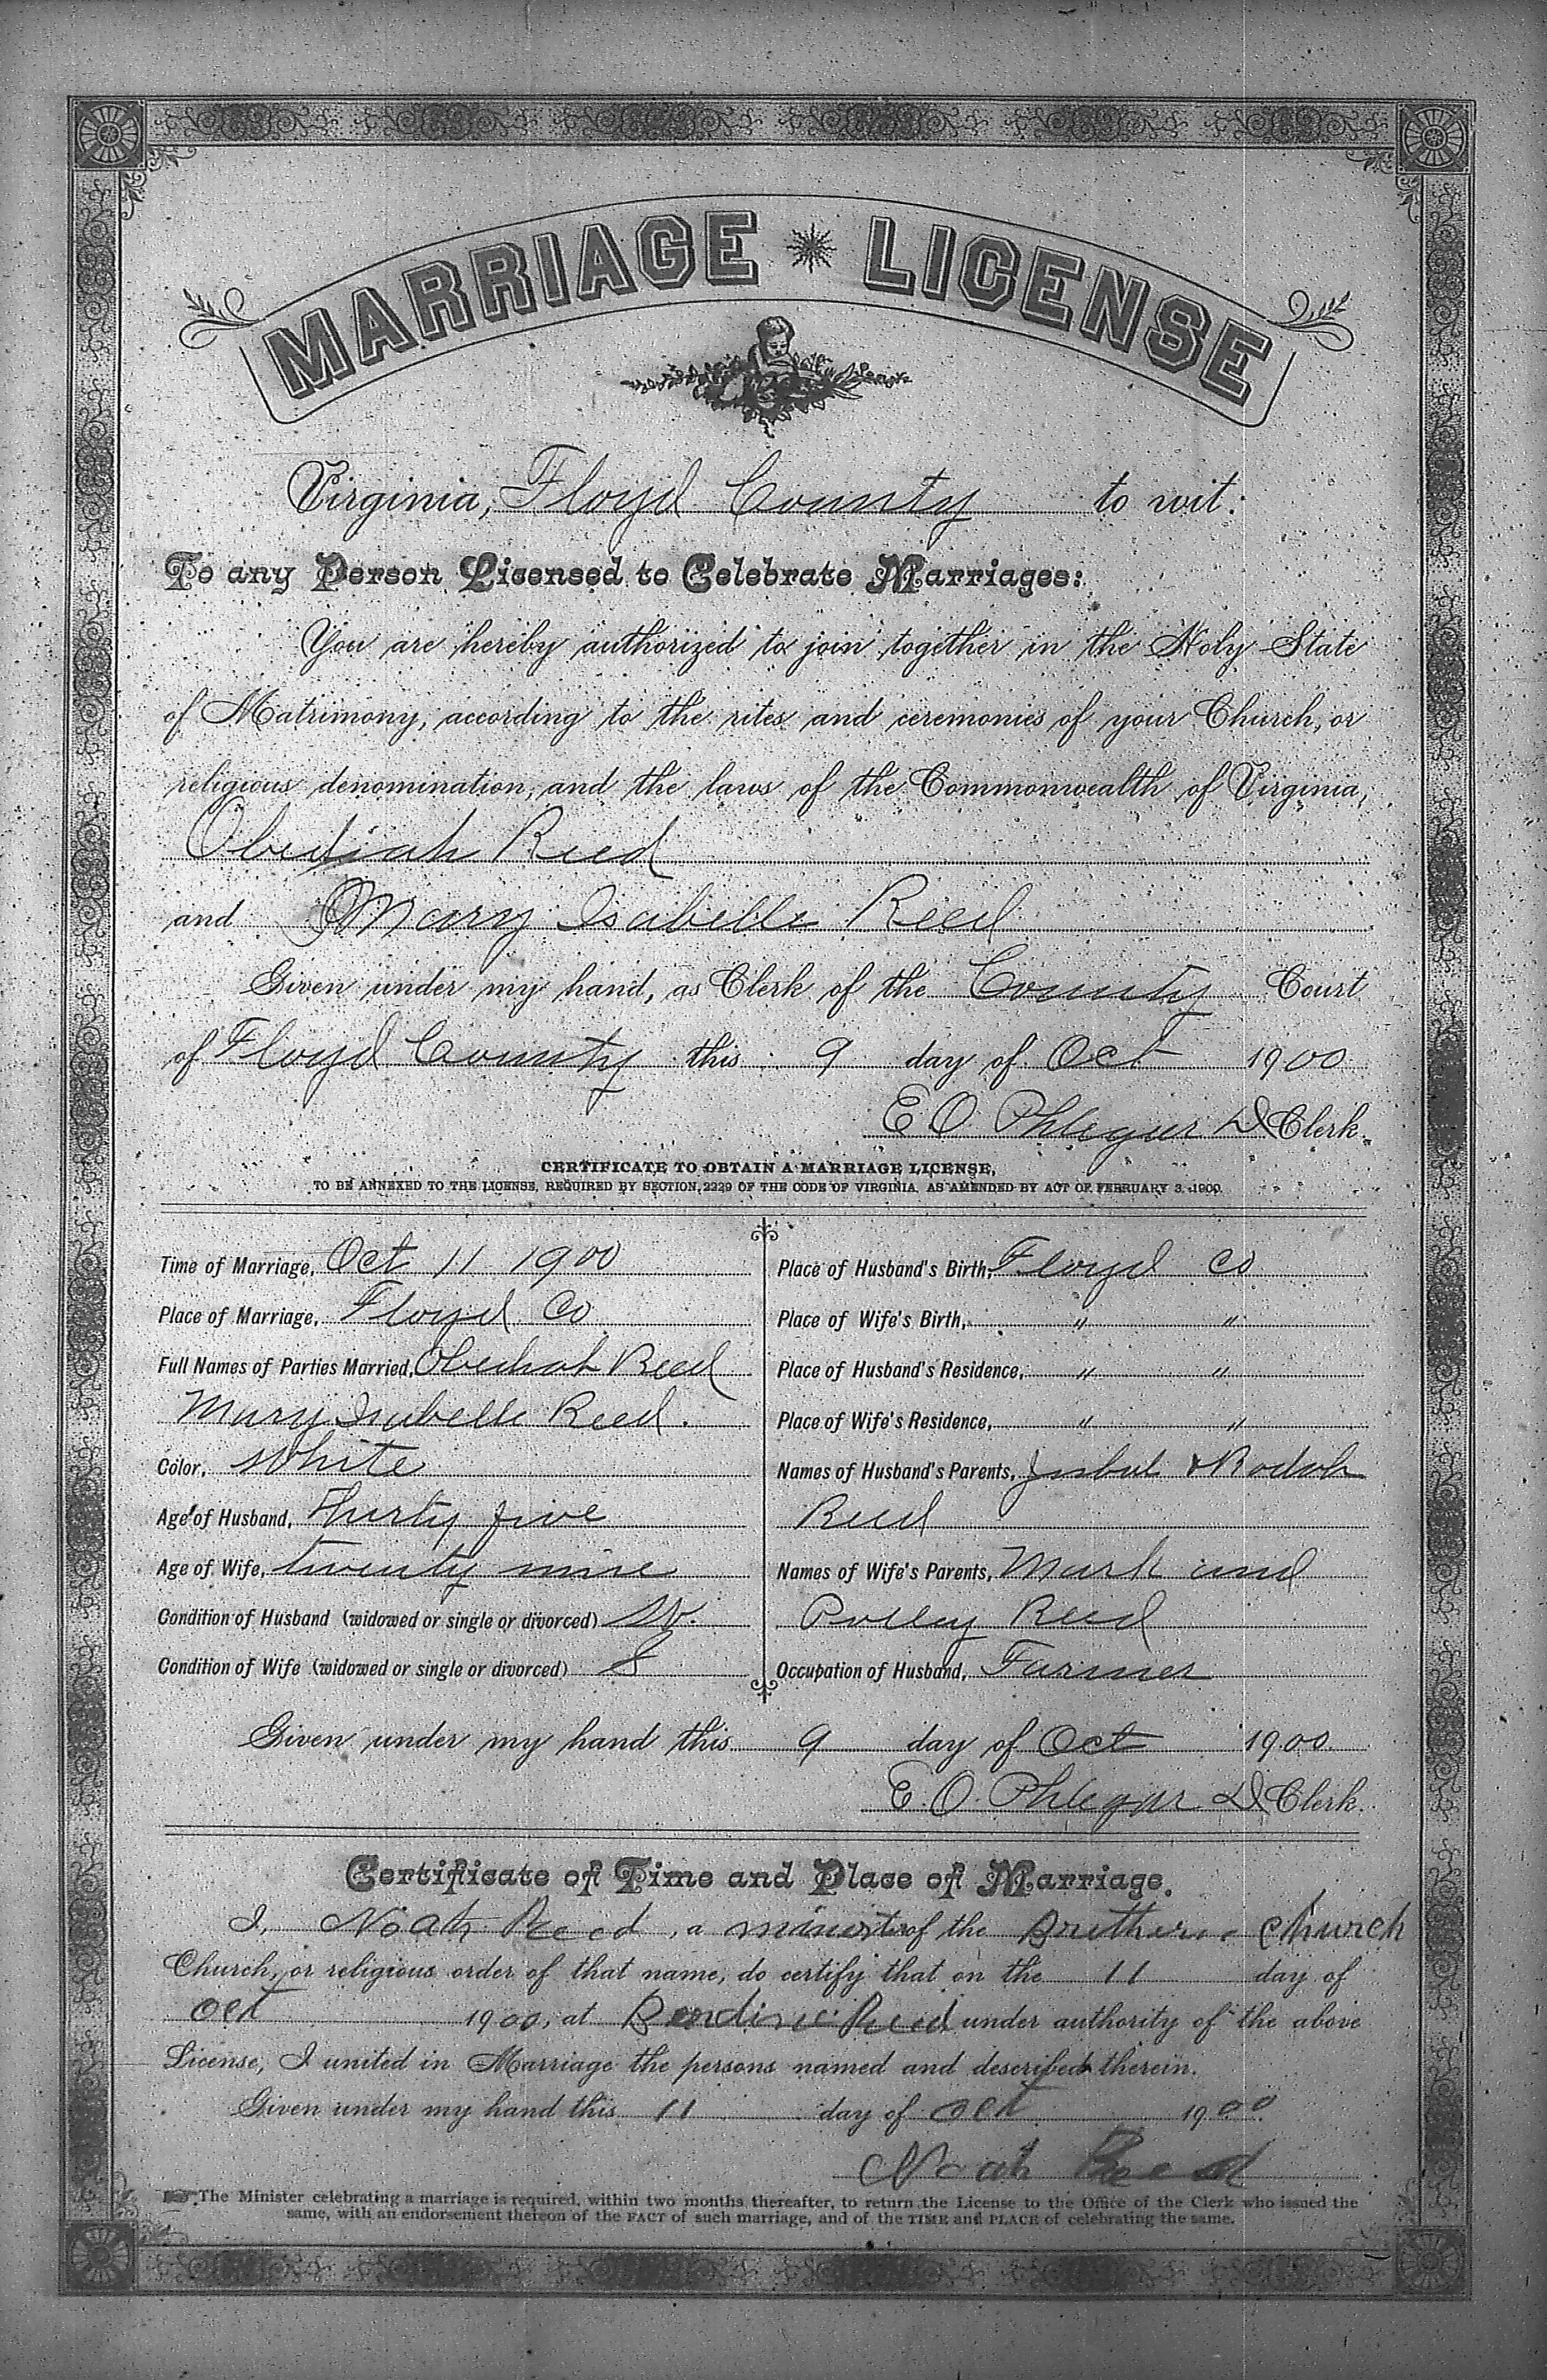 MARRIAGE LICENSE
Virginia, Floyd County to wit:
To any Person Licensed to Celebrate Marriages:
You are hereby authorized to join together in the Holy State
of Matrimony, according to the rites and ceremonies of your Church, or
religious denomination, and the laws of the Commonwealth of Virginia,
Obediah Reed
and Mary Isabelle Reed
Given under my hand, as Clerk of the County Court
of Floyd County this 9 day of Oct 1900
E. O. Phlegar D Clerk.
CERTIFICATE TO OBTAIN A MARRIAGE LICENSE,
TO BE ANNEXED TO THE LICENSE, REQUIRED BY SECTION 2229 OF THE CODE OF VIRGINIA, AS AMENDED BY ACT OF FEBRUARY 3, 1900.
Time of Marriage, Oct 11 1900
Place of Marriage, Floyd Co
Full Names of Parties Married, Obediah Reed
Mary Isabelle Reed.
Color, White
Age of Husband, Thirty five
Age of Wife, twenty nine
Condition of Husband (widowed or single or divorced)
Condition of Wife (widowed or single or divorced) S
Place of Husband's Birth, Floyd Co
Place of Wife's Birth, " "
Place of Husband's Residence, " "
Place of Wife's Residence, " "
Names of Husband's Parents, &
Reed
Names of Wife's Parents, Mark and
Polley Reed
Occupation of Husband, Farmer
Given under my hand this 9 day of Oct 1900
E. O. Phlegar D Clerk.
Certificate of Time and Place of Marriage.
I, Noah Reed, a minister of the Brethern Church
Church, or religious order of that name, do certify that on the 11 day of
Oct 1900, at Reed under authority of the above
License, I united in Marriage the persons named and described therein.
Given under my hand this 11 day of Oct 1900
Noah Reed
The Minister celebrating a marriage is required, within two months thereafter, to return the License to the Office of the Clerk who issued the
same, with an endorsement thereon of the FACT of such marriage, and of the TIME and PLACE of celebrating the same.